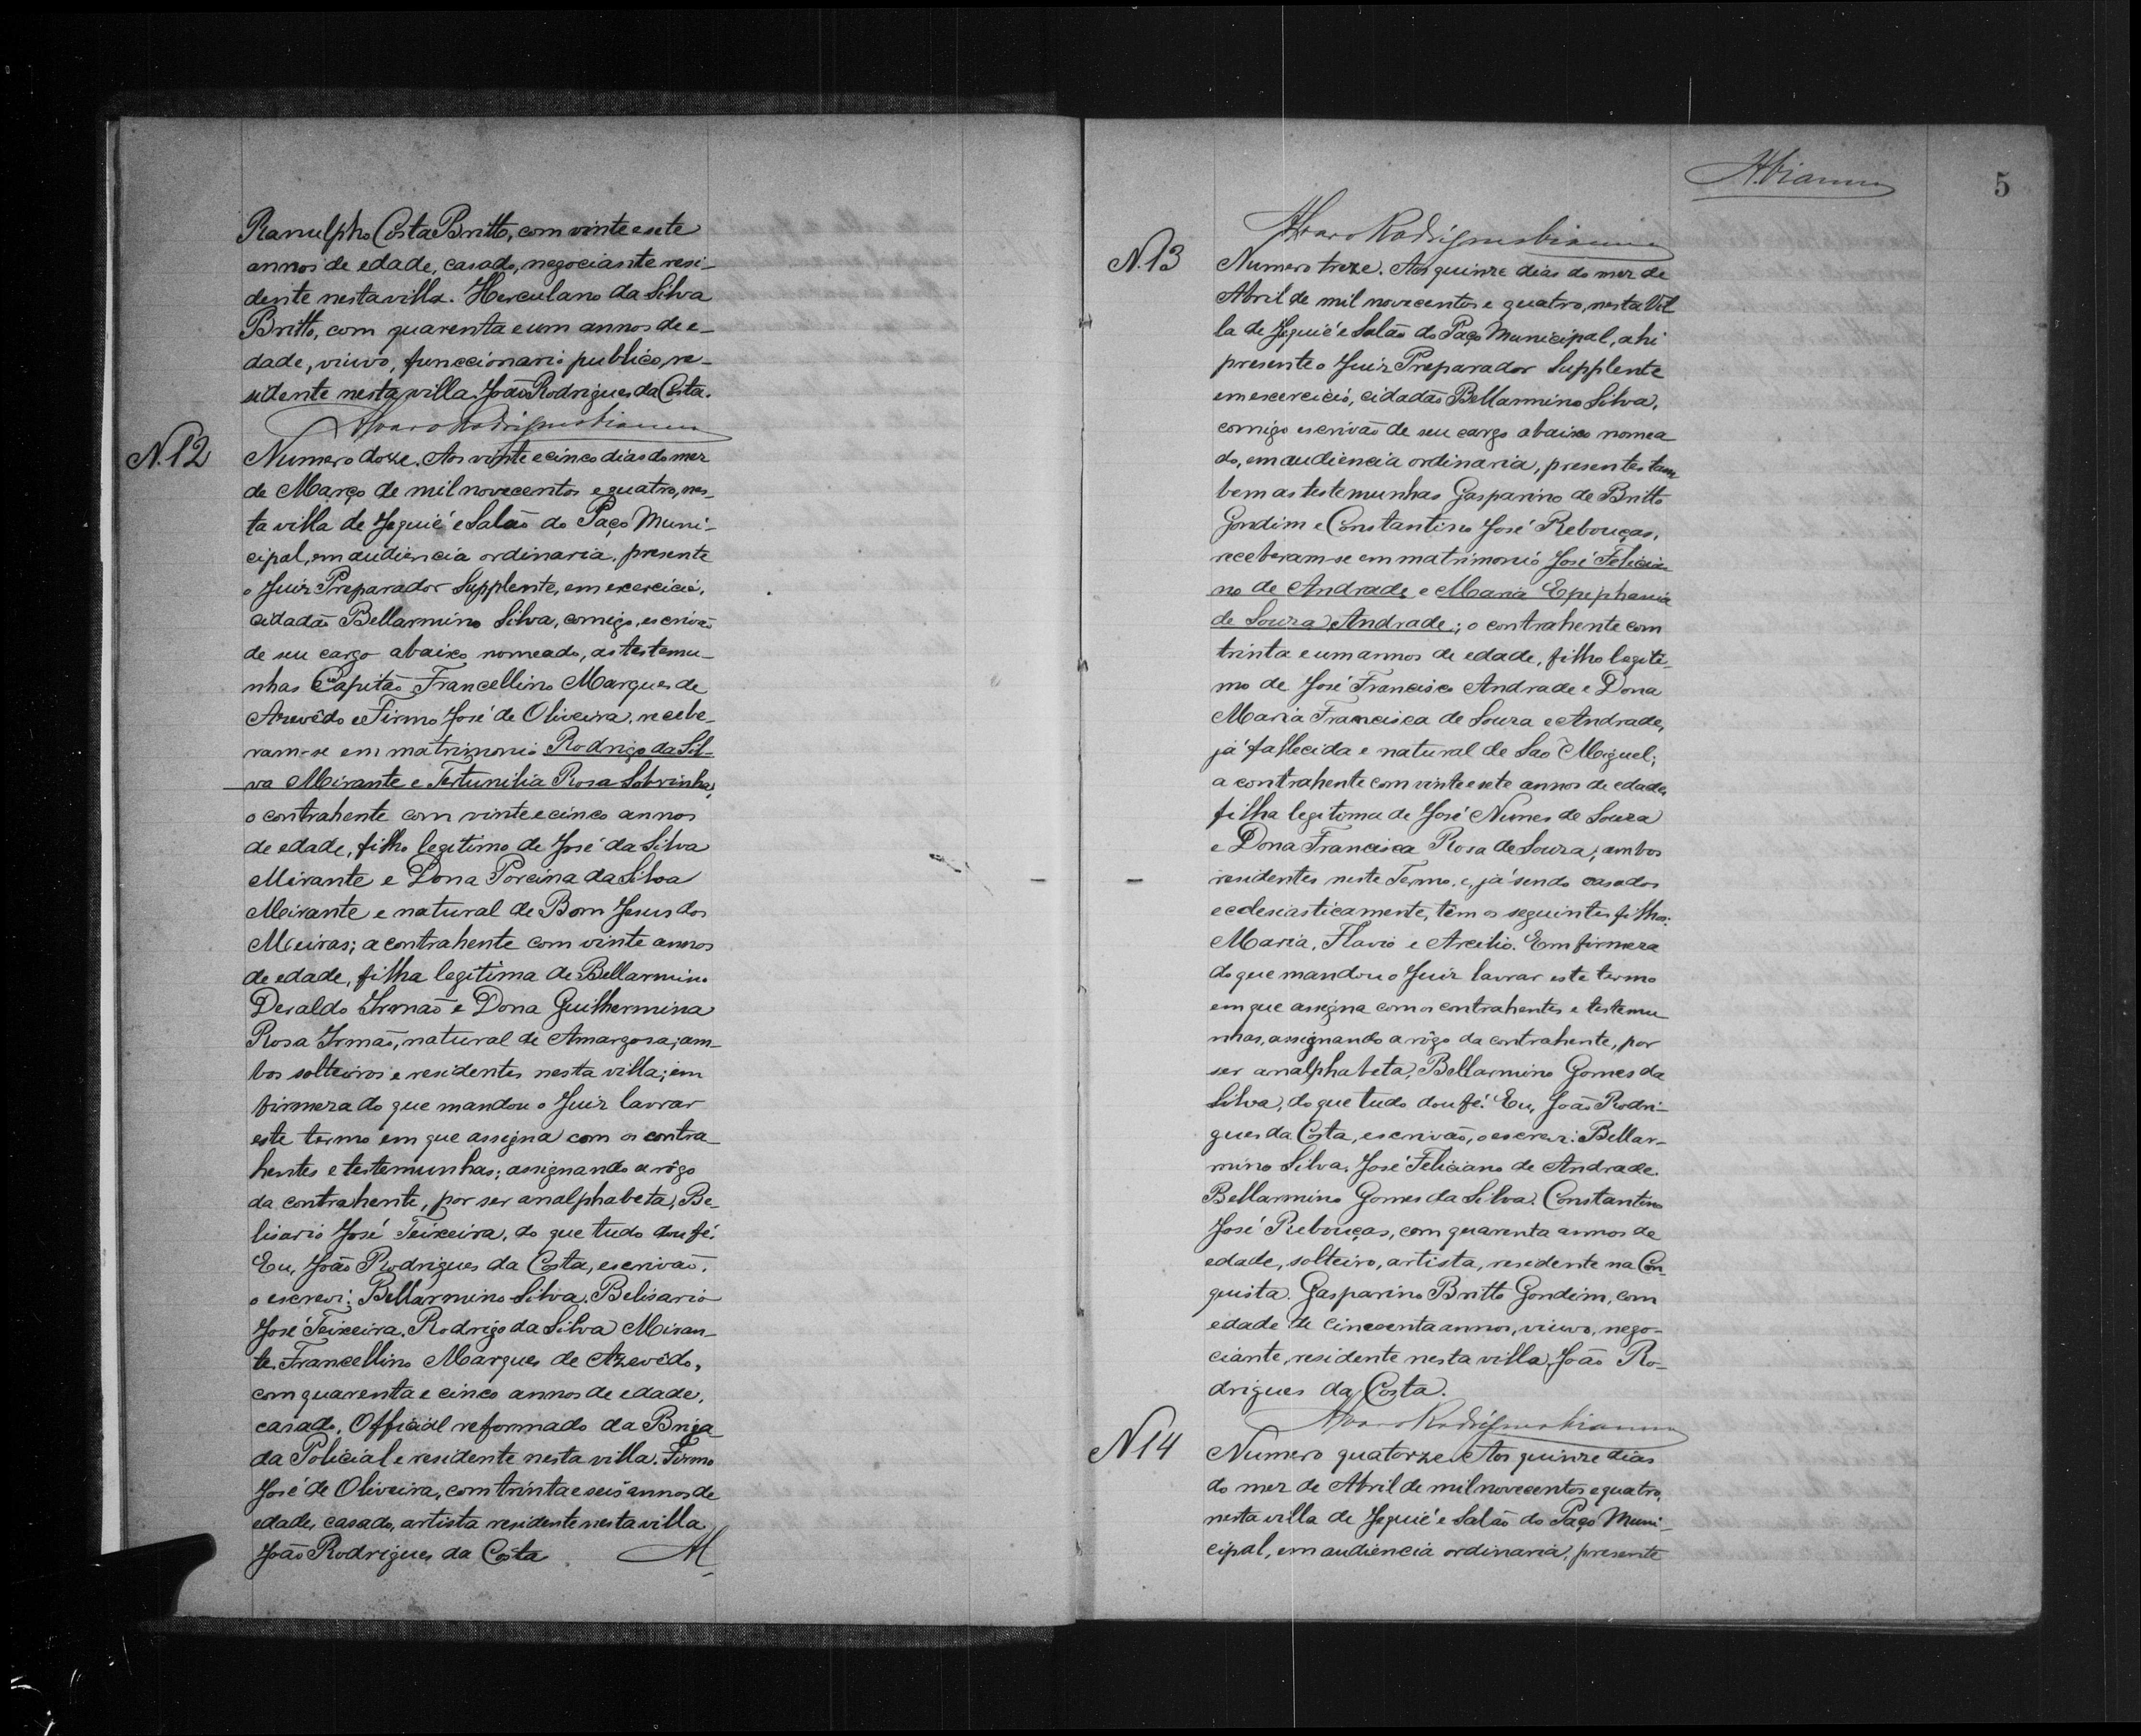 Ranulpho Costa Britto, com vinte e sete
annos de edade, casado, negociante resi-
dente nesta villa. Herculano da Silva
Britto, com quarenta e um annos de e-
dade, viuvo, funccionario publico, re-
sidente nesta villa. João Rodrigues da Costa.
Alvaro Rodrigues Vianna
N. 12
Numero doze. Aos vinte e cinco dias do mez
de Março de mil novecentos e quatro, nes-
ta villa de Jequié e Salão do Paço Muni-
cipal, em audiencia ordinaria, presente
o Juiz Preparador Supplente, em exercicio,
cidadão Bellarmino Silva, comigo, escrivão
de seu cargo abaixo nomeado, as testemu-
nhas Capitão Francellino Marques de
Azevêdo e Firmo José de Oliveira, recebe-
ram-se em matrimonio Rodrigo da Sil-
va Mirante e Tertunilia Rosa Sobrinha,
o contrahente com vinte e cinco annos
de edade, filho legitimo de José da Silva
Mirante e Dona Porcina da Silva
Mirante e natural de Bom Jesus dos
Meiras; a contrahente com vinte annos
de edade, filha legitima de Bellarmino
Deraldo Irmão e Dona Guilhermina
Rosa Irmão, natural de Amargosa; am-
bos solteiros e residentes nesta villa; em
firmeza do que mandou o Juiz lavrar
este termo em que assigna com os contra-
hentes e testemunhas; assignando a rôgo
da contrahente, por ser analphabeta, Be-
lisario José Teixeira, do que tudo dou fé.
Eu, João Rodrigues da Costa, escrivão,
o escrevi: Bellarmino Silva. Belisario
José Teixeira. Rodrigo da Silva Miran-
te. Francellino Marques de Azevêdo,
com quarenta e cinco annos de edade,
casado, Official reformado da Briga
da Policial e residente nesta villa. Firmo
José de Oliveira, com trinta e seis annos de
edade, casado, artista residente nesta villa
João Rodrigues da Costa
5
Alvaro Rodrigues Vianna
N. 13
Numero treze. Aos quinze dias do mez de
Abril de mil novecentos e quatro, nesta Vil
la de Jequié e Salão do Paço Municipal, ahi
presente o Juiz Preparador Supplente
em excercicio, cidadão Bellarmino Silva,
comigo escrivão de seu cargo abaixo nomea
do, em audiencia ordinaria, presentes tam
bem as testemunhas Gasparino de Britto
Gondim e Constantino José Rebouças,
receberam-se em matrimonio José Felicia-
no de Andrade e Maria Epephania
de Souza Andrade; o contrahente com
trinta e um annos de edade, filho legiti-
mo de José Francisco Andrade e Dona
Maria Francisca de Souza e Andrade,
já fallecida e natural de Sao Miguel;
a contrahente com vinte e sete annos de edade,
filha legitima de José Nunes de Souza
e Dona Francisca Rosa de Souza; ambos
residentes neste Termo, e, já sendo casados
ecclesiasticamente, têm os seguintes filhos:
Maria, Flavio e Arcelio. Em firmeza
do que mandou o Juiz lavrar este termo
em que assigna com os contrahentes e testemu
nhas, assignando a rôgo da contrahente, por
ser analphabeta, Bellarmino Gomes da
Silva, do que tudo dou fé. Eu, João Rodri-
gues da Costa, escrivão, o escrevi: Bellar-
mino Silva. José Feliciano de Andrade.
Bellarmino Gomes da Silva. Constantino
José Rebouças, com quarenta annos de
edade, solteiro, artista, residente na Con-
quista. Gasparino Britto Gondim, com
edade de cincoenta annos, viuvo, nego-
ciante, residente nesta villa, João Ro-
drigues da Costa.
Alvaro Rodrigues Vianna
N 14
Numero quatorze. Aos quinze dias
do mez de Abril de mil novecentos e quatro,
nesta villa de Jequié e Salão do Paço Muni-
cipal, em audiencia ordinaria, presente